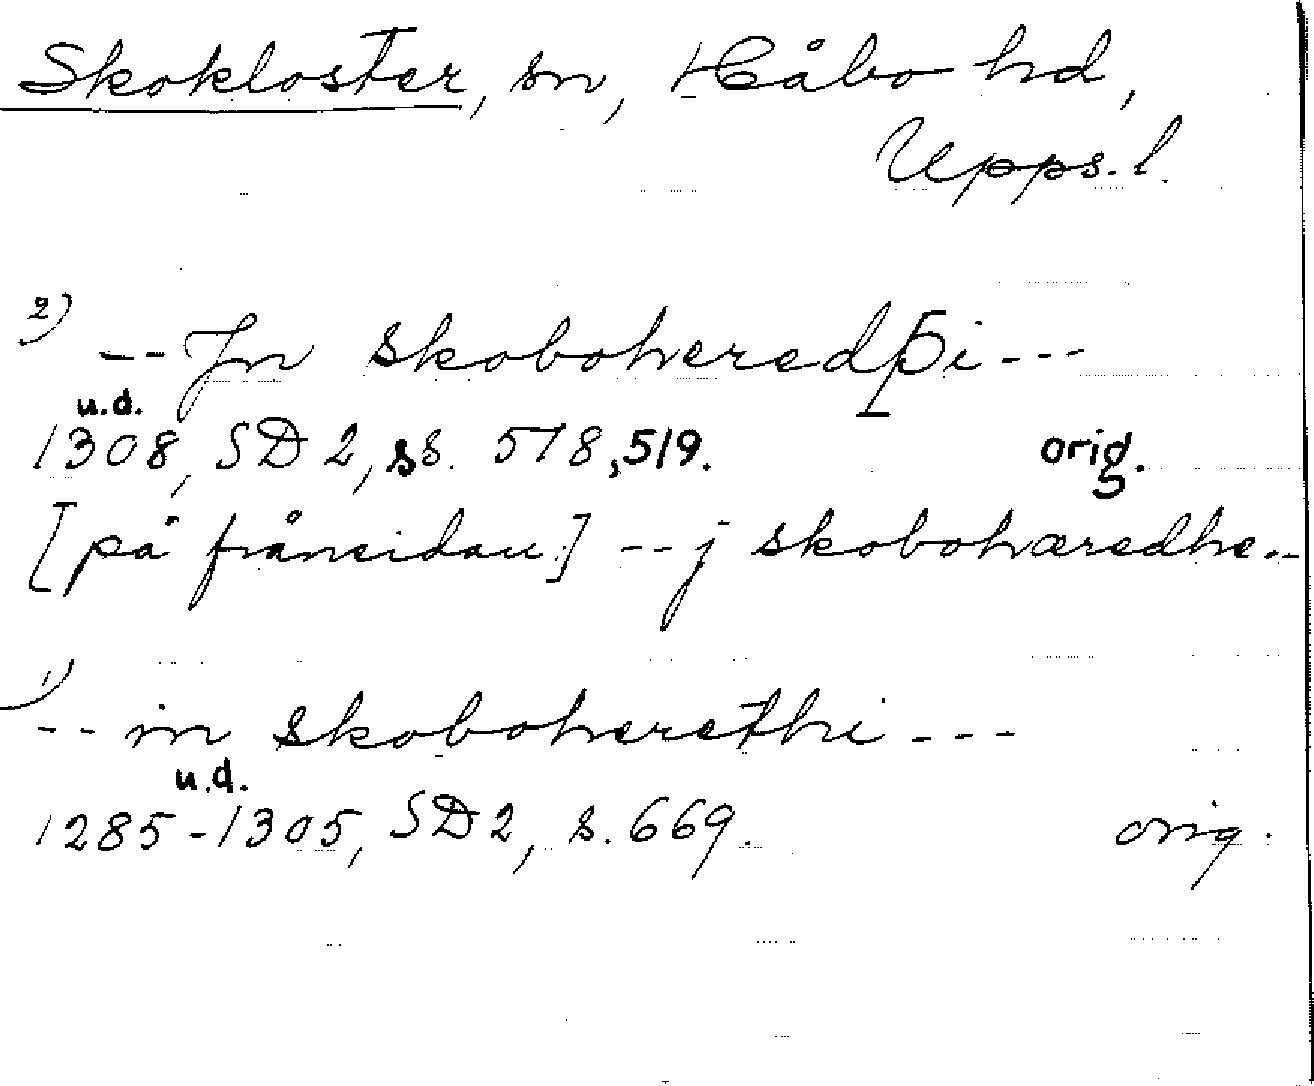 Skokloster, sn, Håbo hd,
Upps. l.
2) -- Jn skoboheredþi ---
u.d.
1308, SD 2, ss. 518, 519. orig.
[på frånsidan:] -- j skobohæredhe..
1) -- in skoboherethi ---
u.d.
1285-1305, SD 2, s. 669. orig.